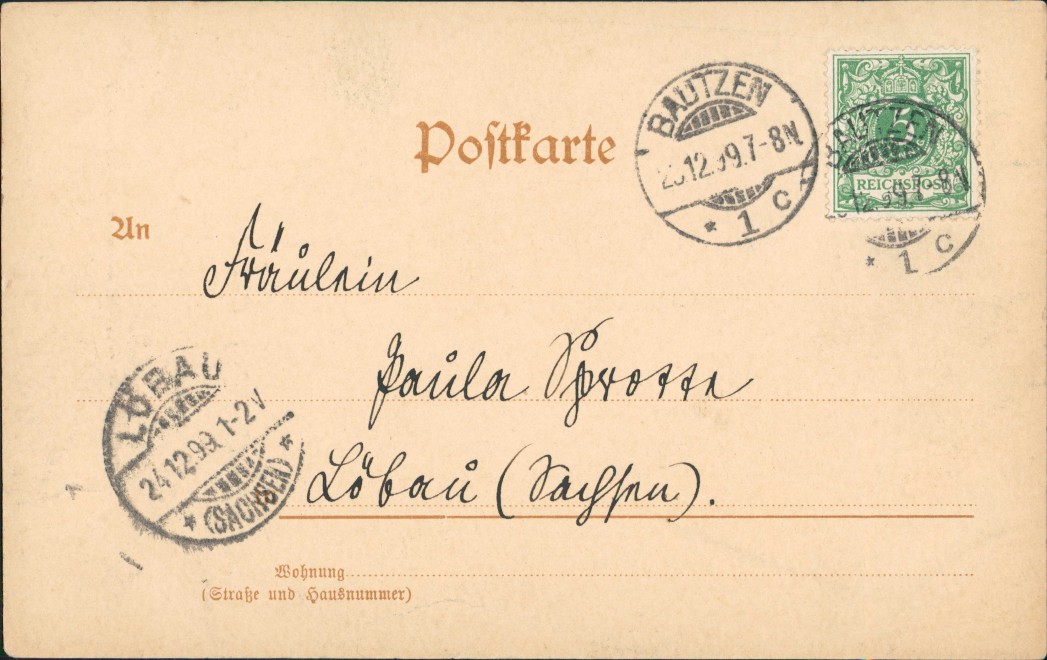 Postkarte
BAUTZEN
12.99.7-8N
* 1 c
5
REICHSPOST
BAUTZEN
12.99.7-8N
* 1 c
An
Fräulein
Paula Sprotte
Löbau (Sachsen).
LÖBAU
24.12.99.1-2V
* (SACHSEN) *
Wohnung
(Straße und Hausnummer)